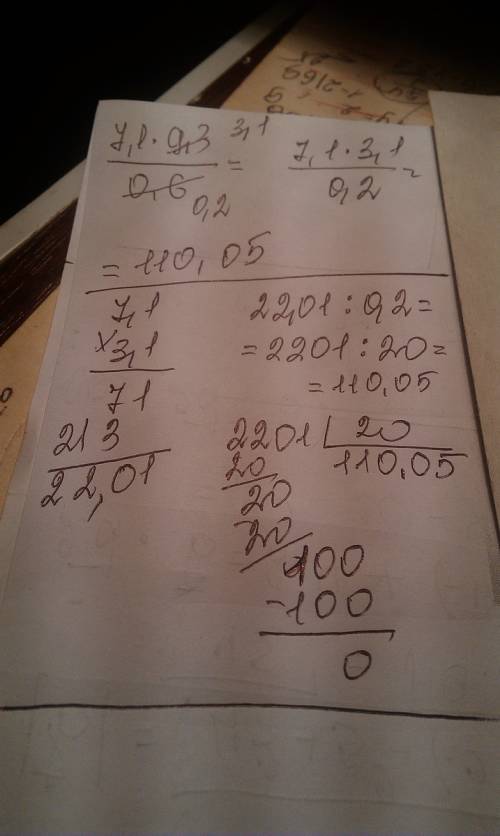 7,1 · 9,3 3,1
0,6 0,2 = 7,1 · 3,1
0,2 =
= 110,05
7,1
× 3,1
71
213
22,01
22,01 : 0,2 =
= 2201 : 20 =
= 110,05
2201 | 20
20 110,05
20
20
100
- 100
0